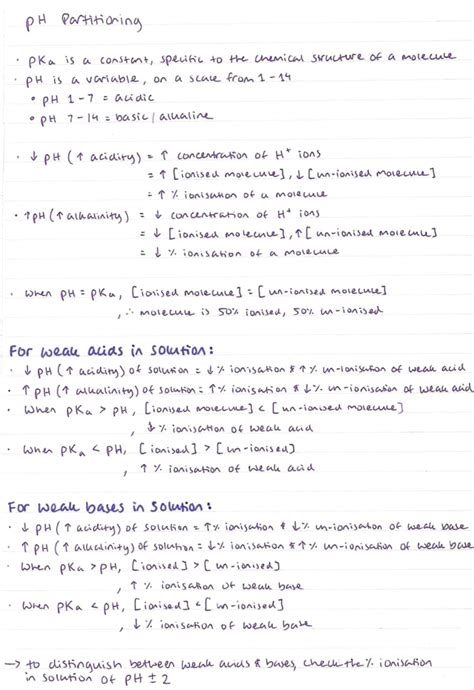 pH Partitioning
• pKa is a constant, specific to the chemical structure of a molecule
• pH is a variable, on a scale from 1-14
• pH 1-7 = acidic
• pH 7-14 = basic/alkaline
• ↓ pH (↑ acidity) = ↑ concentration of H⁺ ions
= ↑ [ionised molecule], ↓ [un-ionised molecule]
= ↑ % ionisation of a molecule
• ↑pH (↑ alkalinity) = ↓ concentration of H⁺ ions
= ↓ [ionised molecule], ↑ [un-ionised molecule]
= ↓ % ionisation of a molecule
• When pH = pKa, [ionised molecule] = [un-ionised molecule]
, ∴ molecule is 50% ionised, 50% un-ionised
For weak acids in solution:
• ↓ pH (↑ acidity) of solution = ↓% ionisation & ↑% un-ionisation of weak acid
• ↑ pH (↑ alkalinity) of solution = ↑% ionisation & ↓% un-ionisation of weak acid
• When pKa > pH, [ionised molecule] < [un-ionised molecule]
, ↓% ionisation of weak acid
• When pKa < pH, [ionised] > [un-ionised]
, ↑% ionisation of weak acid
For weak bases in solution:
• ↓ pH (↑ acidity) of solution = ↑% ionisation & ↓% un-ionisation of weak base
• ↑ pH (↑ alkalinity) of solution = ↓% ionisation & ↑% un-ionisation of weak base
• When pKa > pH, [ionised] > [un-ionised]
, ↑% ionisation of weak base
• When pKa < pH, [ionised] < [un-ionised]
, ↓% ionisation of weak base
→ to distinguish between weak acids & bases, check the % ionisation
in solution of pH ± 2